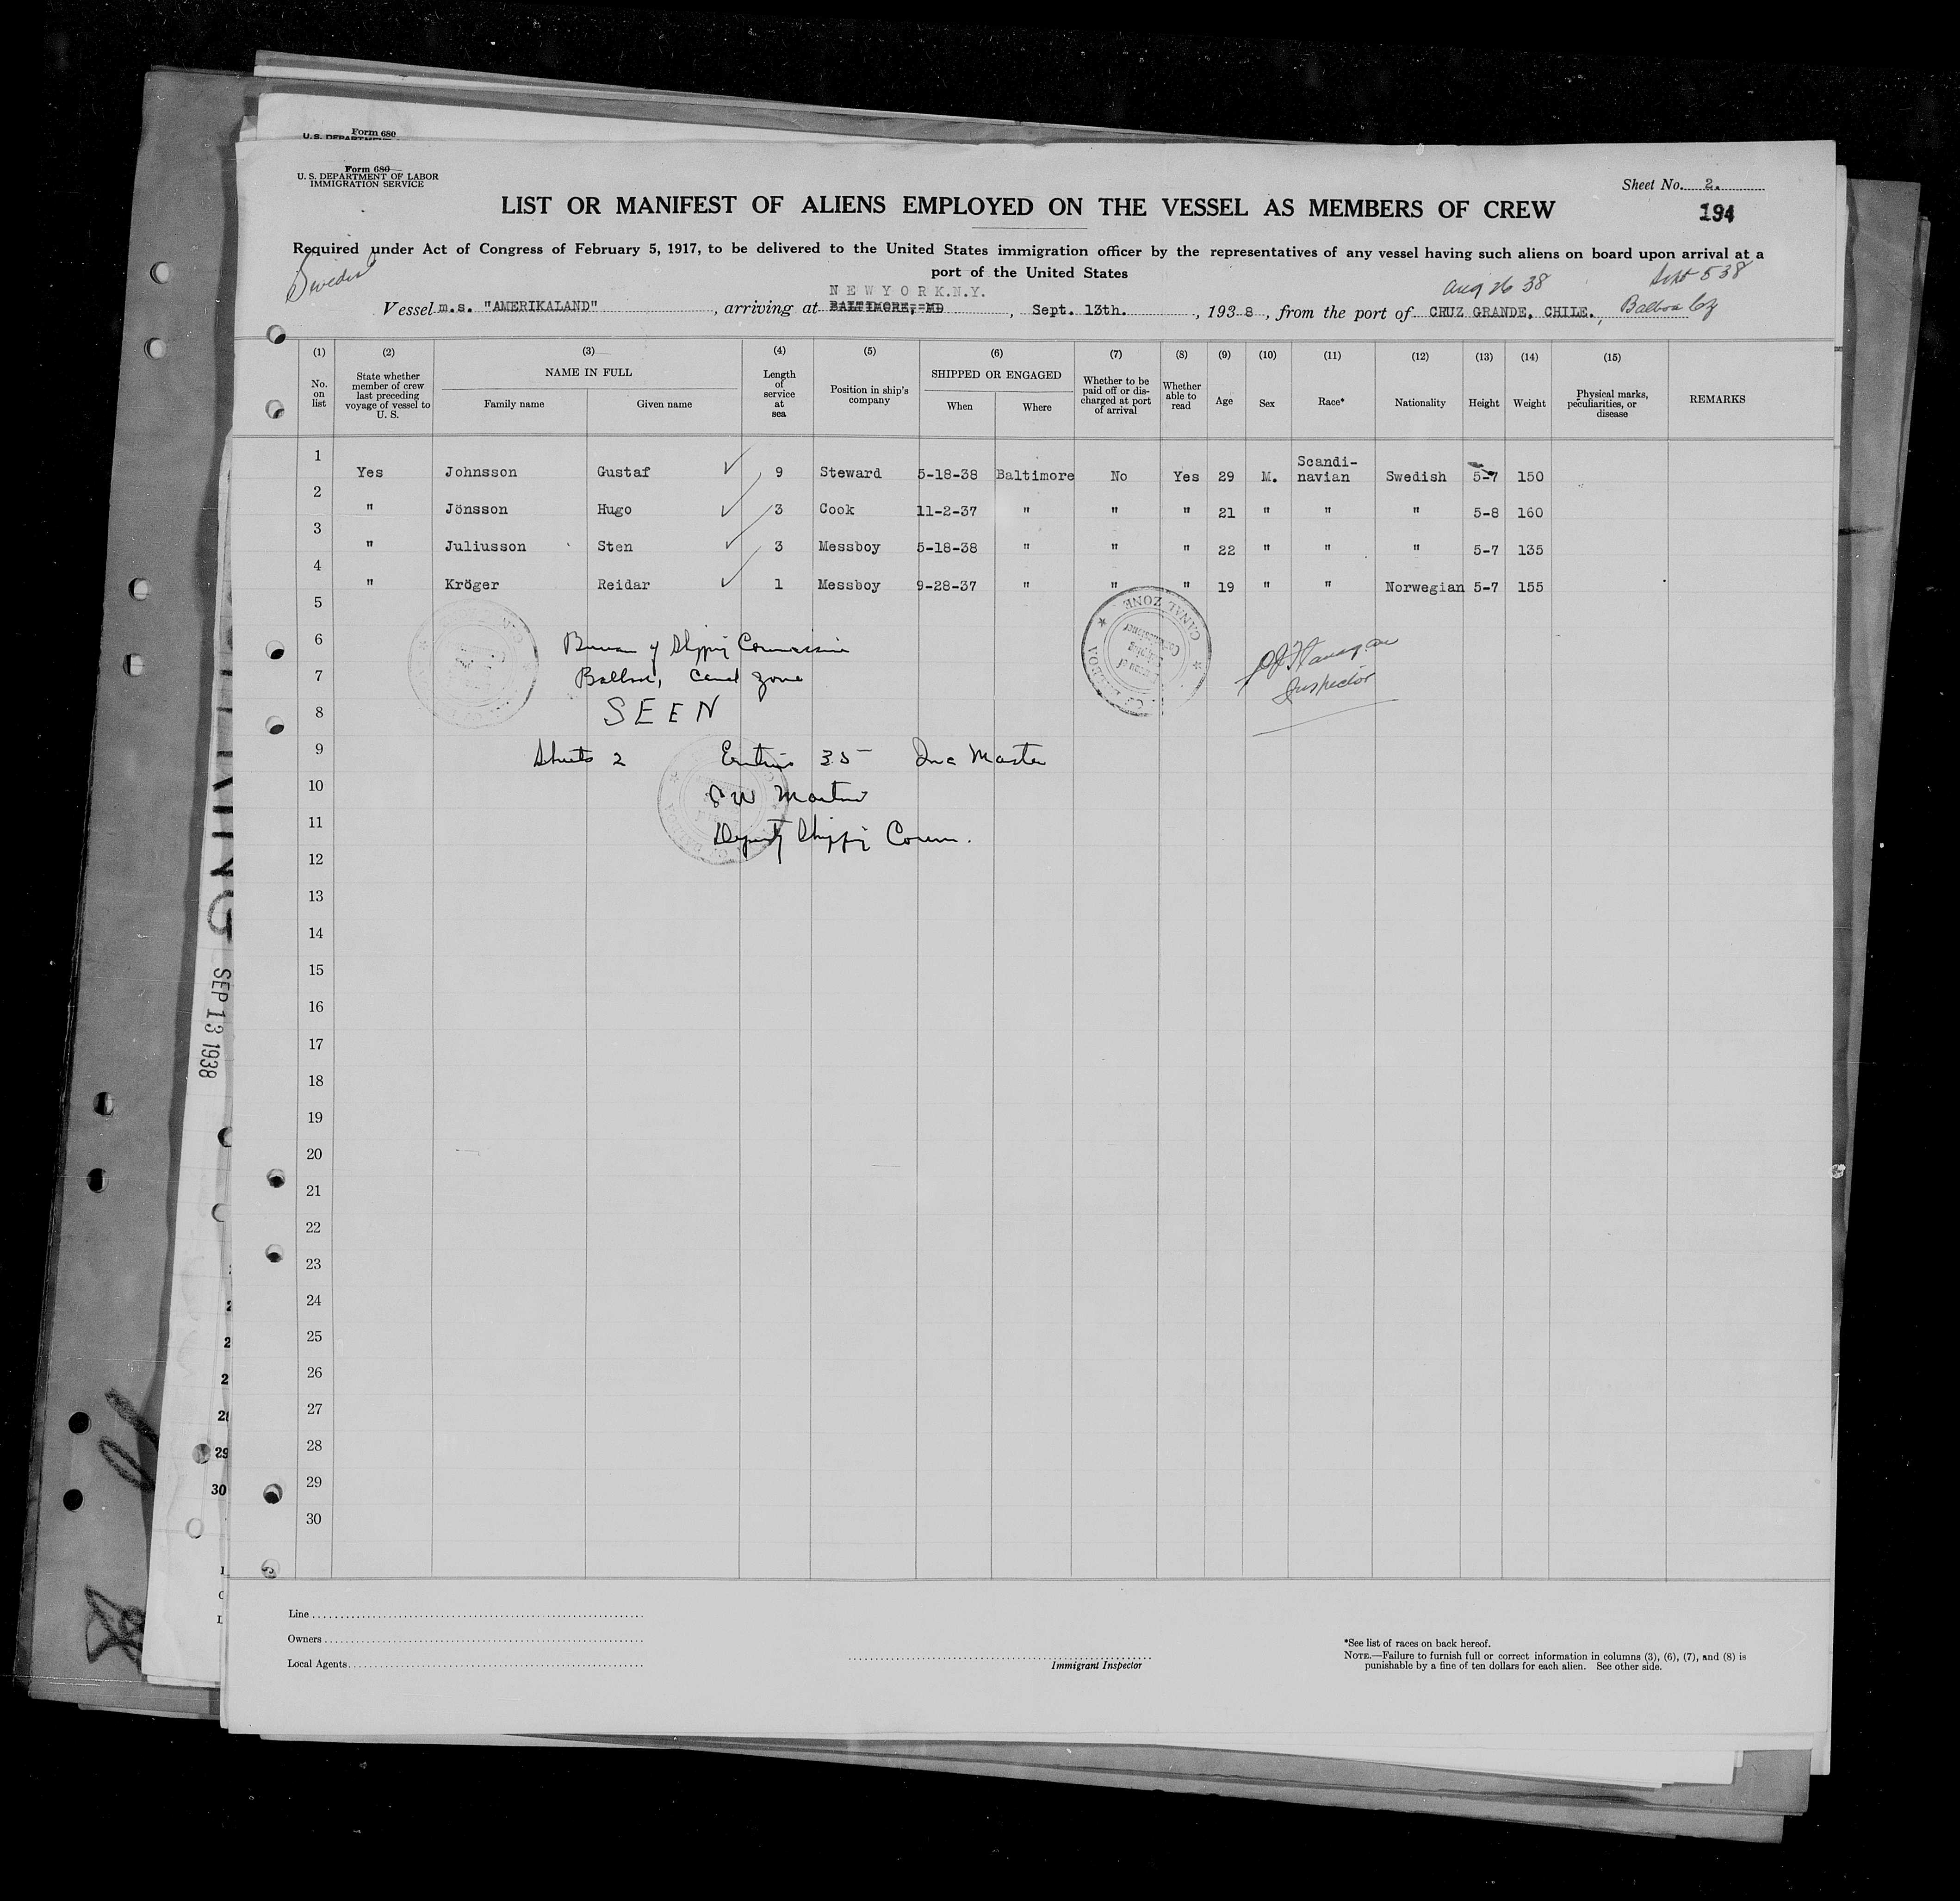 Form 680
U. S. DEPARTMENT
Form 680
U. S. DEPARTMENT OF LABOR
IMMIGRATION SERVICE
Sheet No. 2.
194
LIST OR MANIFEST OF ALIENS EMPLOYED ON THE VESSEL AS MEMBERS OF CREW
Required under Act of Congress of February 5, 1917, to be delivered to the United States immigration officer by the representatives of any vessel having such aliens on board upon arrival at a
port of the United States
Swedish
NEW YORK.N.Y.
Aug 26 38
Sept 5 38
Vessel m.s. "AMERIKALAND", arriving at BALTIMORE, MD, Sept. 13th., 1938, from the port of CRUZ GRANDE, CHILE., Balboa CZ
(1) (2) (3) (4) (5) (6) (7) (8) (9) (10) (11) (12) (13) (14) (15)
No. on list
State whether member of crew last preceding voyage of vessel to U. S.
NAME IN FULL
Family name Given name
Length of service at sea
Position in ship's company
SHIPPED OR ENGAGED
When Where
Whether to be paid off or discharged at port of arrival
Whether able to read
Age
Sex
Race*
Nationality
Height
Weight
Physical marks, peculiarities, or disease
REMARKS
1 Yes Johnsson Gustaf 9 Steward 5-18-38 Baltimore No Yes 29 M. Scandi-navian Swedish 5-7 150
2 " Jönsson Hugo 3 Cook 11-2-37 " " " 21 " " " 5-8 160
3 " Juliusson Sten 3 Messboy 5-18-38 " " " 22 " " " 5-7 135
4 " Kröger Reidar 1 Messboy 9-28-37 " " " 19 " " Norwegian 5-7 155
5
CANAL ZONE
6 Bureau of Shipping Commissioner
7 Balboa, Canal Zone
Inspector
8 SEEN
9 Sheets 2 Entries 35 Inc Master
10 Martin
11 Deputy Shippg Comm.
12
13
14
15
16
17
18
19
20
21
22
23
24
25
26
27
28
29
30
SEP 13 1938
29
30
Line
Owners
Local Agents
Immigrant Inspector
*See list of races on back hereof.
NOTE.—Failure to furnish full or correct information in columns (3), (6), (7), and (8) is
punishable by a fine of ten dollars for each alien. See other side.